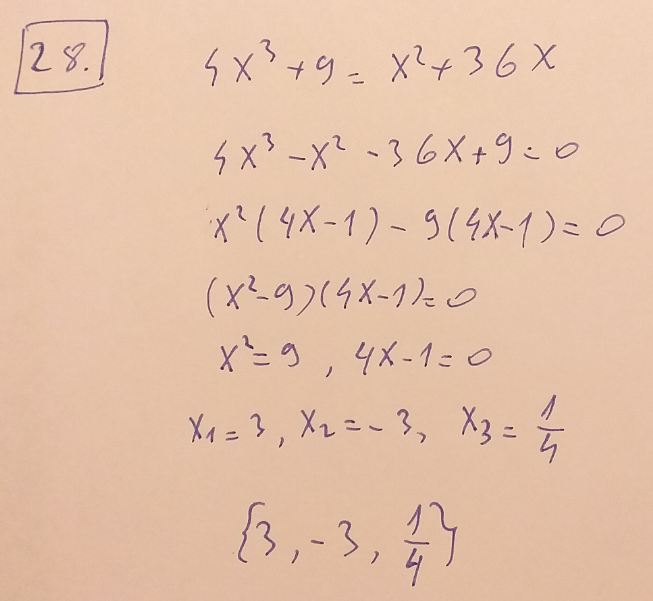 28.
4x³+9=x²+36x
4x³-x²-36x+9=0
x²(4x-1)-9(4x-1)=0
(x²-9)(4x-1)=0
x²=9, 4x-1=0
x₁=3, x₂=-3, x₃=1/4
{3,-3,1/4}